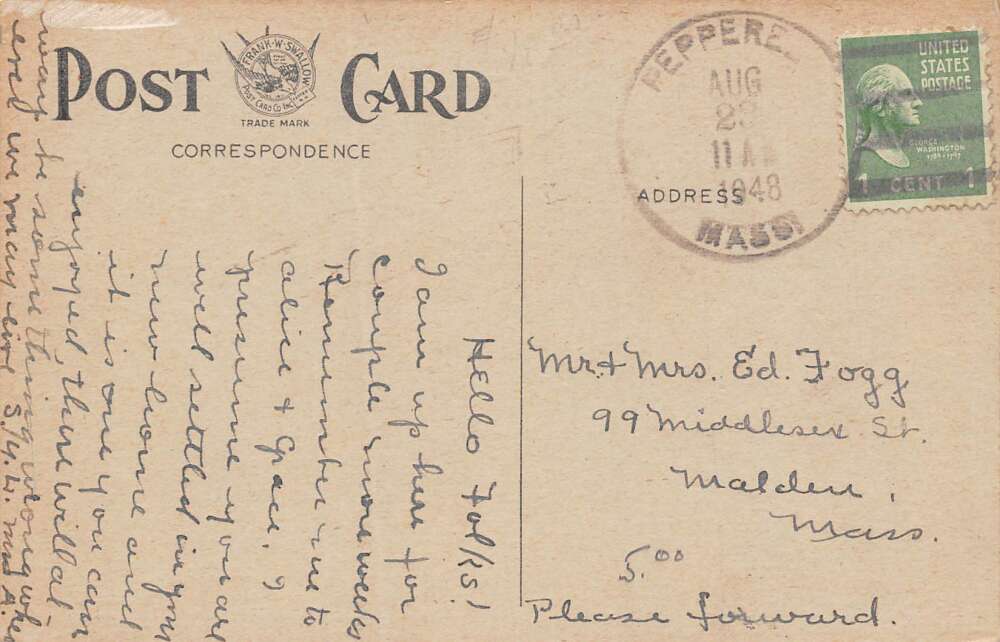 POST CARD
FRANK·W·SWALLOW
POST CARD CO. INC.
TRADE MARK
CORRESPONDENCE
ADDRESS
PEPPERE
AUG
11 AM
1948
MASS.
UNITED
STATES
POSTAGE
GEORGE
WASHINGTON
1789-1797
1 CENT 1
Hello Folks!
I am up here for
couple more weeks
Remember me to
alice + Grace. I
presume you are
well settled in your
new home and
it is one you can
enjoyed, there will al
ways be something wrong wher
ever we may live
Mr. + Mrs. Ed. Fogg
99 Middlesex St.
Malden,
Mass.
5.00
Please forward.